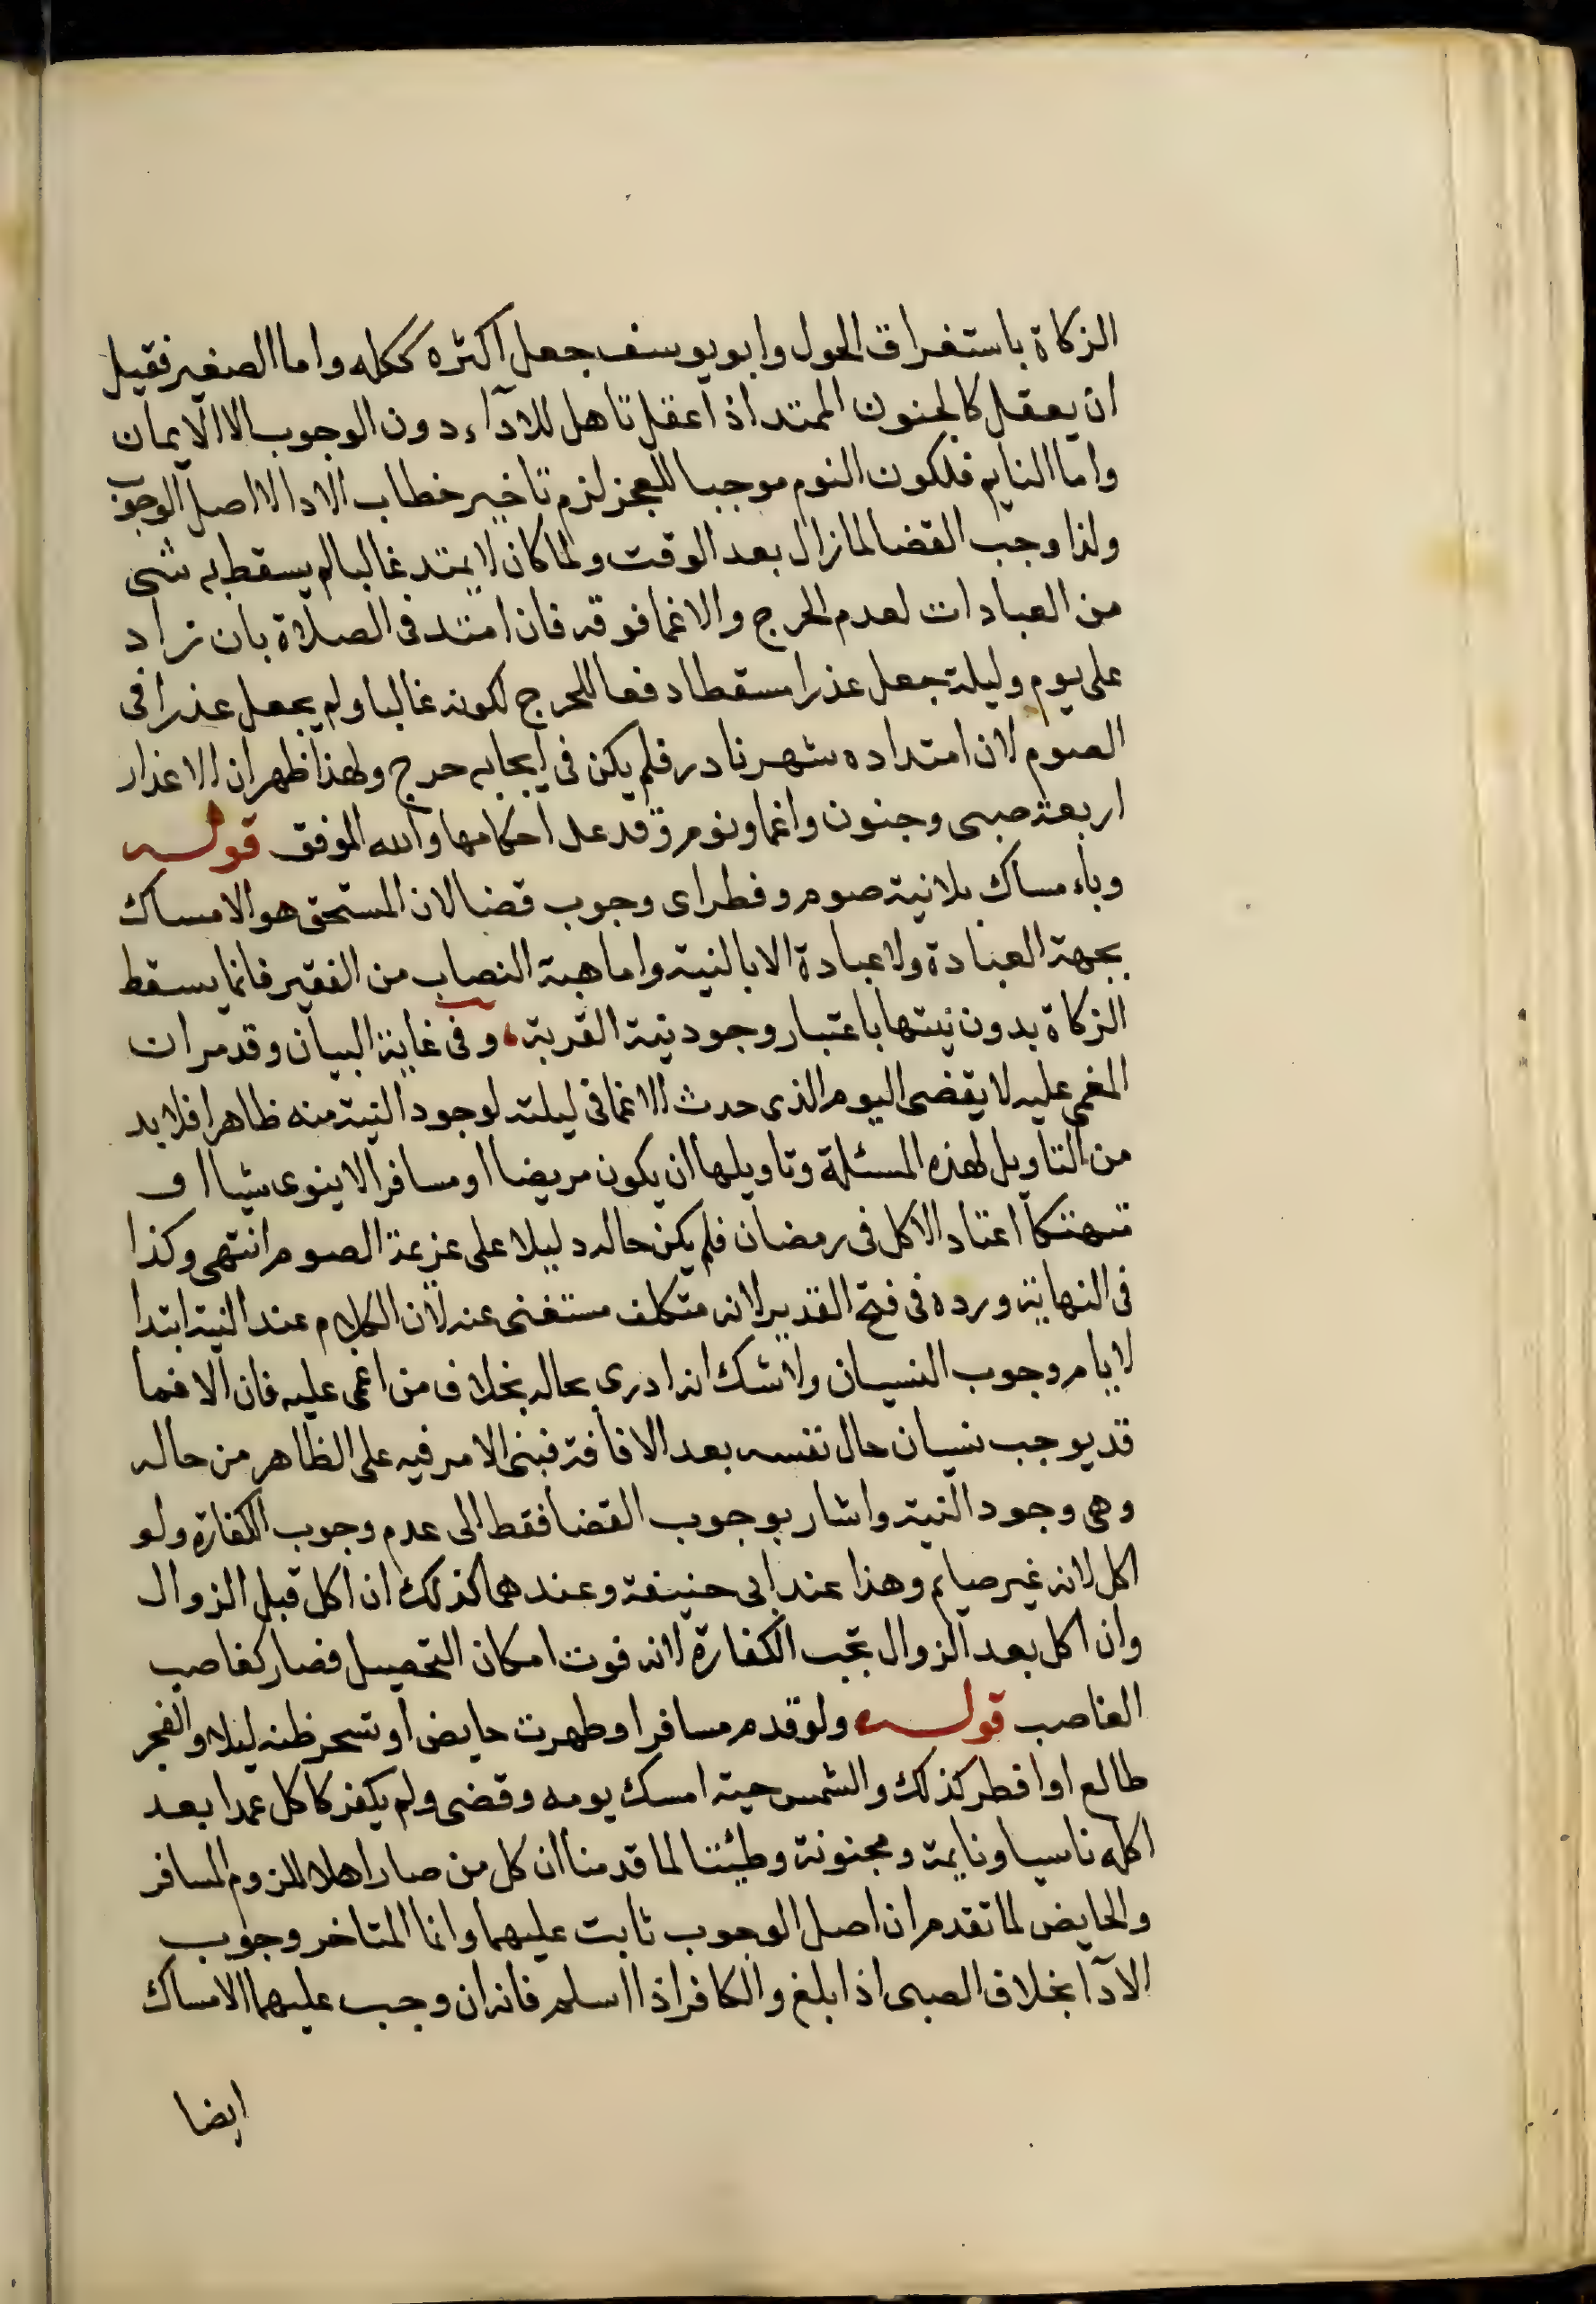 الزكاة باستغراق الحول وابو يوسف جعل اكثره ككله واما الصغير فقيل
ان يعقل كالمجنون الممتد اذ اعقل تاهل للادآء دون الوجوب الا الايمان
واما النايم فلكون النوم موجبا للعجز لزم تاخير خطاب الادا لا اصل الوجوب
ولذا وجب القضا لما زال بعد الوقت ولما كان لا يمتد غالبا لم يسقط به شى
من العبادات لعدم الحرج والاغما فوقه فان امتد فى الصلاة بان زاد
على يوم وليلة جعل عذرا مسقطا دفعا للحرج لكونه غالبا ولم يجعل عذرا فى
الصوم لان امتداده شهر نادر فلم يكن فى ايجابه حرج ولهذا ظهر ان الاعذار
اربعة صبى وجنون واغما ونوم وقد عد احكامها والله الموفق قوله
وباءمساك بلا نية صوم وفطر اى وجوب قضا لان المستحق هو الامساك
بجهة العبادة ولا عبادة الا بالنية واما هبة النصاب من الفقير فانما يسقط
الزكاة بدون نيتها باعتبار وجود نية القربة، وفى غاية البيان وقد مر ان
المغمى عليه لا يقضى اليوم الذى حدث الاغما فى ليلته لوجود النية منه ظاهرا فلا بد
من التاويل لهذه المسئلة وتاويلها ان يكون مريضا او مسافرا لا ينوى شيا او
متهتكا اعتاد الاكل فى رمضان فلم يكن حاله دليلا على عزيمة الصوم انتهى وكذا
فى النهاية ورده فى فتح القدير لانه متكلف مستغنى عنه لان الكلام عند النية ابتدا
لا بامر وجوب النسيان ولا شك انه ادرى بحاله بخلاف من اغمى عليه فان الاغما
قد يوجب نسيان حال نفسه بعد الافاقة فبنى الامر فيه على الظاهر من حاله
وهى وجود النية واشار بوجوب القضا فقط الى عدم وجوب الكفارة ولو
اكل لانه غير صايم وهذا عند ابى حنيفة وعندهما كذلك ان اكل قبل الزوال
وان اكل بعد الزوال تجب الكفارة لانه فوت امكان التحصيل فصار كغاصب
الغاصب قوله ولو قدم مسافر او طهرت حايض او تسحر ظنه ليلا والفجر
طالع او افطر كذلك والشمس حية امسك يومه وقضى ولم يكفر كاكل عمدا بعد
اكله ناسيا ونايمة ومجنونة وطئتا لما قدمنا ان كل من صار اهلا للزوم المسافر
والحايض لما تقدم ان اصل الوجوب ثابت عليهما وانما المتاخر وجوب
الادآ بخلاف الصبى اذا بلغ والكافر اذا اسلم فانه ان وجب عليهما الامساك
ايضا